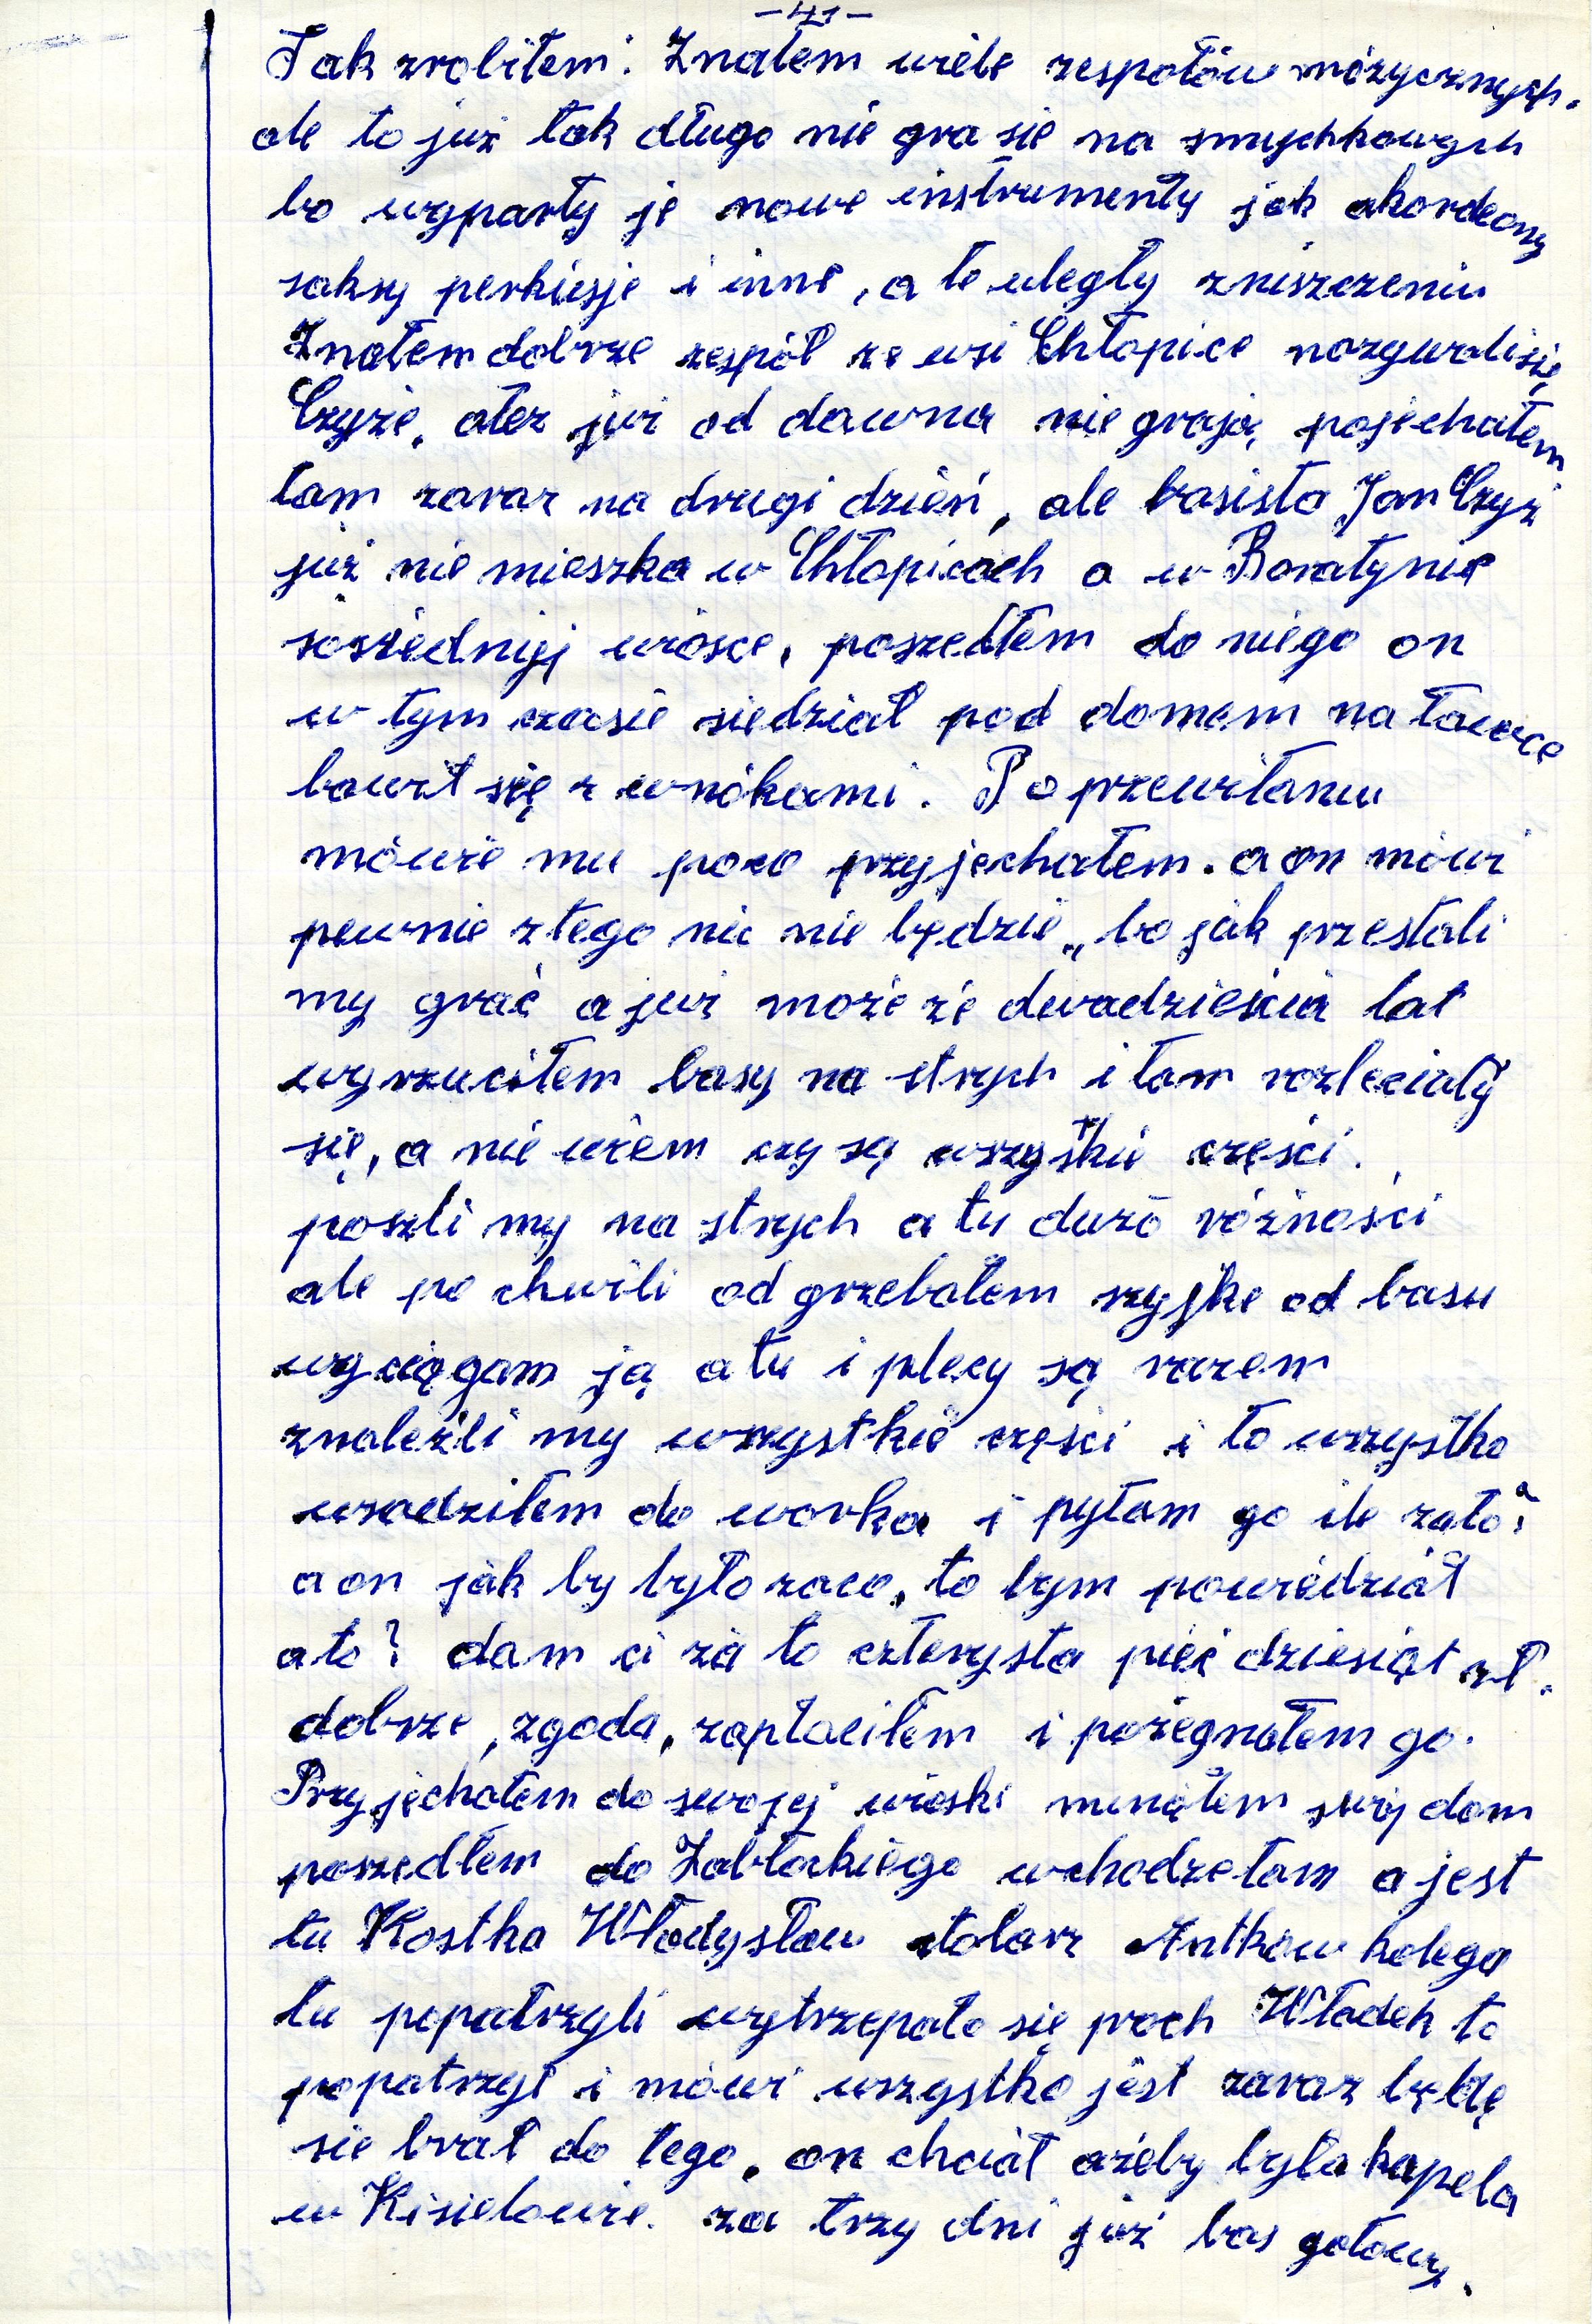 -41-
Tak zrobiłem. Znałem wiele zespołów mózycznych.
ale to już tak długo nie gra sie na smychkowych
bo wyparły je nowe instrumenty jak akordeony
saksy perkusje i inne, a te uległy zniszczeniu
Znałem dobrze zespół ze wsi Chłopice nazywali się
Czyże, ałez już od dawna nie grają, pojechałem
tam zaraz na drugi dzień, ale basista Jan Czyż
już nie mieszka w Chłopicach a w Boratynie
sosiedniej wiosce, poszedłem do niego on
w tym czasie siedział pod domem na ławce
bawił się z wnókami. Po przewitaniu
mówie mu poco przyjechałem. a on mówi
pewnie ztego nic nie będzie„ bo jak przestali
my grać a już może że dwadzieścia lat
wyrzuciłem basy na strych i tam rozleciały
się, a nie wiem czy są wszystkie części.
poszli my na strych a tu dużo różności
ale po chwili od grzebałem szyjke od basu
wyciągam ją a tu i plecy są razem
znaleźli my wszystkie części i to wszystko
wsadziłem do worka i pytam go ile zato?
a on jak by było zaco, to bym powiedział
a to? dam ci za to czterysta pięć dziesiąt zł.
dobrze, zgoda, zapłaciłem i pożegnałem go.
Przyjechałem do swojej wioski minąłem swój dom
poszedłem do Zabłockiego wchodze tam a jest
tu Kostka Władysław stolarz Antków kolega
tu popatrzyli wytrzepało się proch Władek to
popatrzył i mówi wszystko jest zaraz będę
sie brał do tego, on chciał ażeby była kapela
w Kisielowie. za trzy dni już bas gotowy.